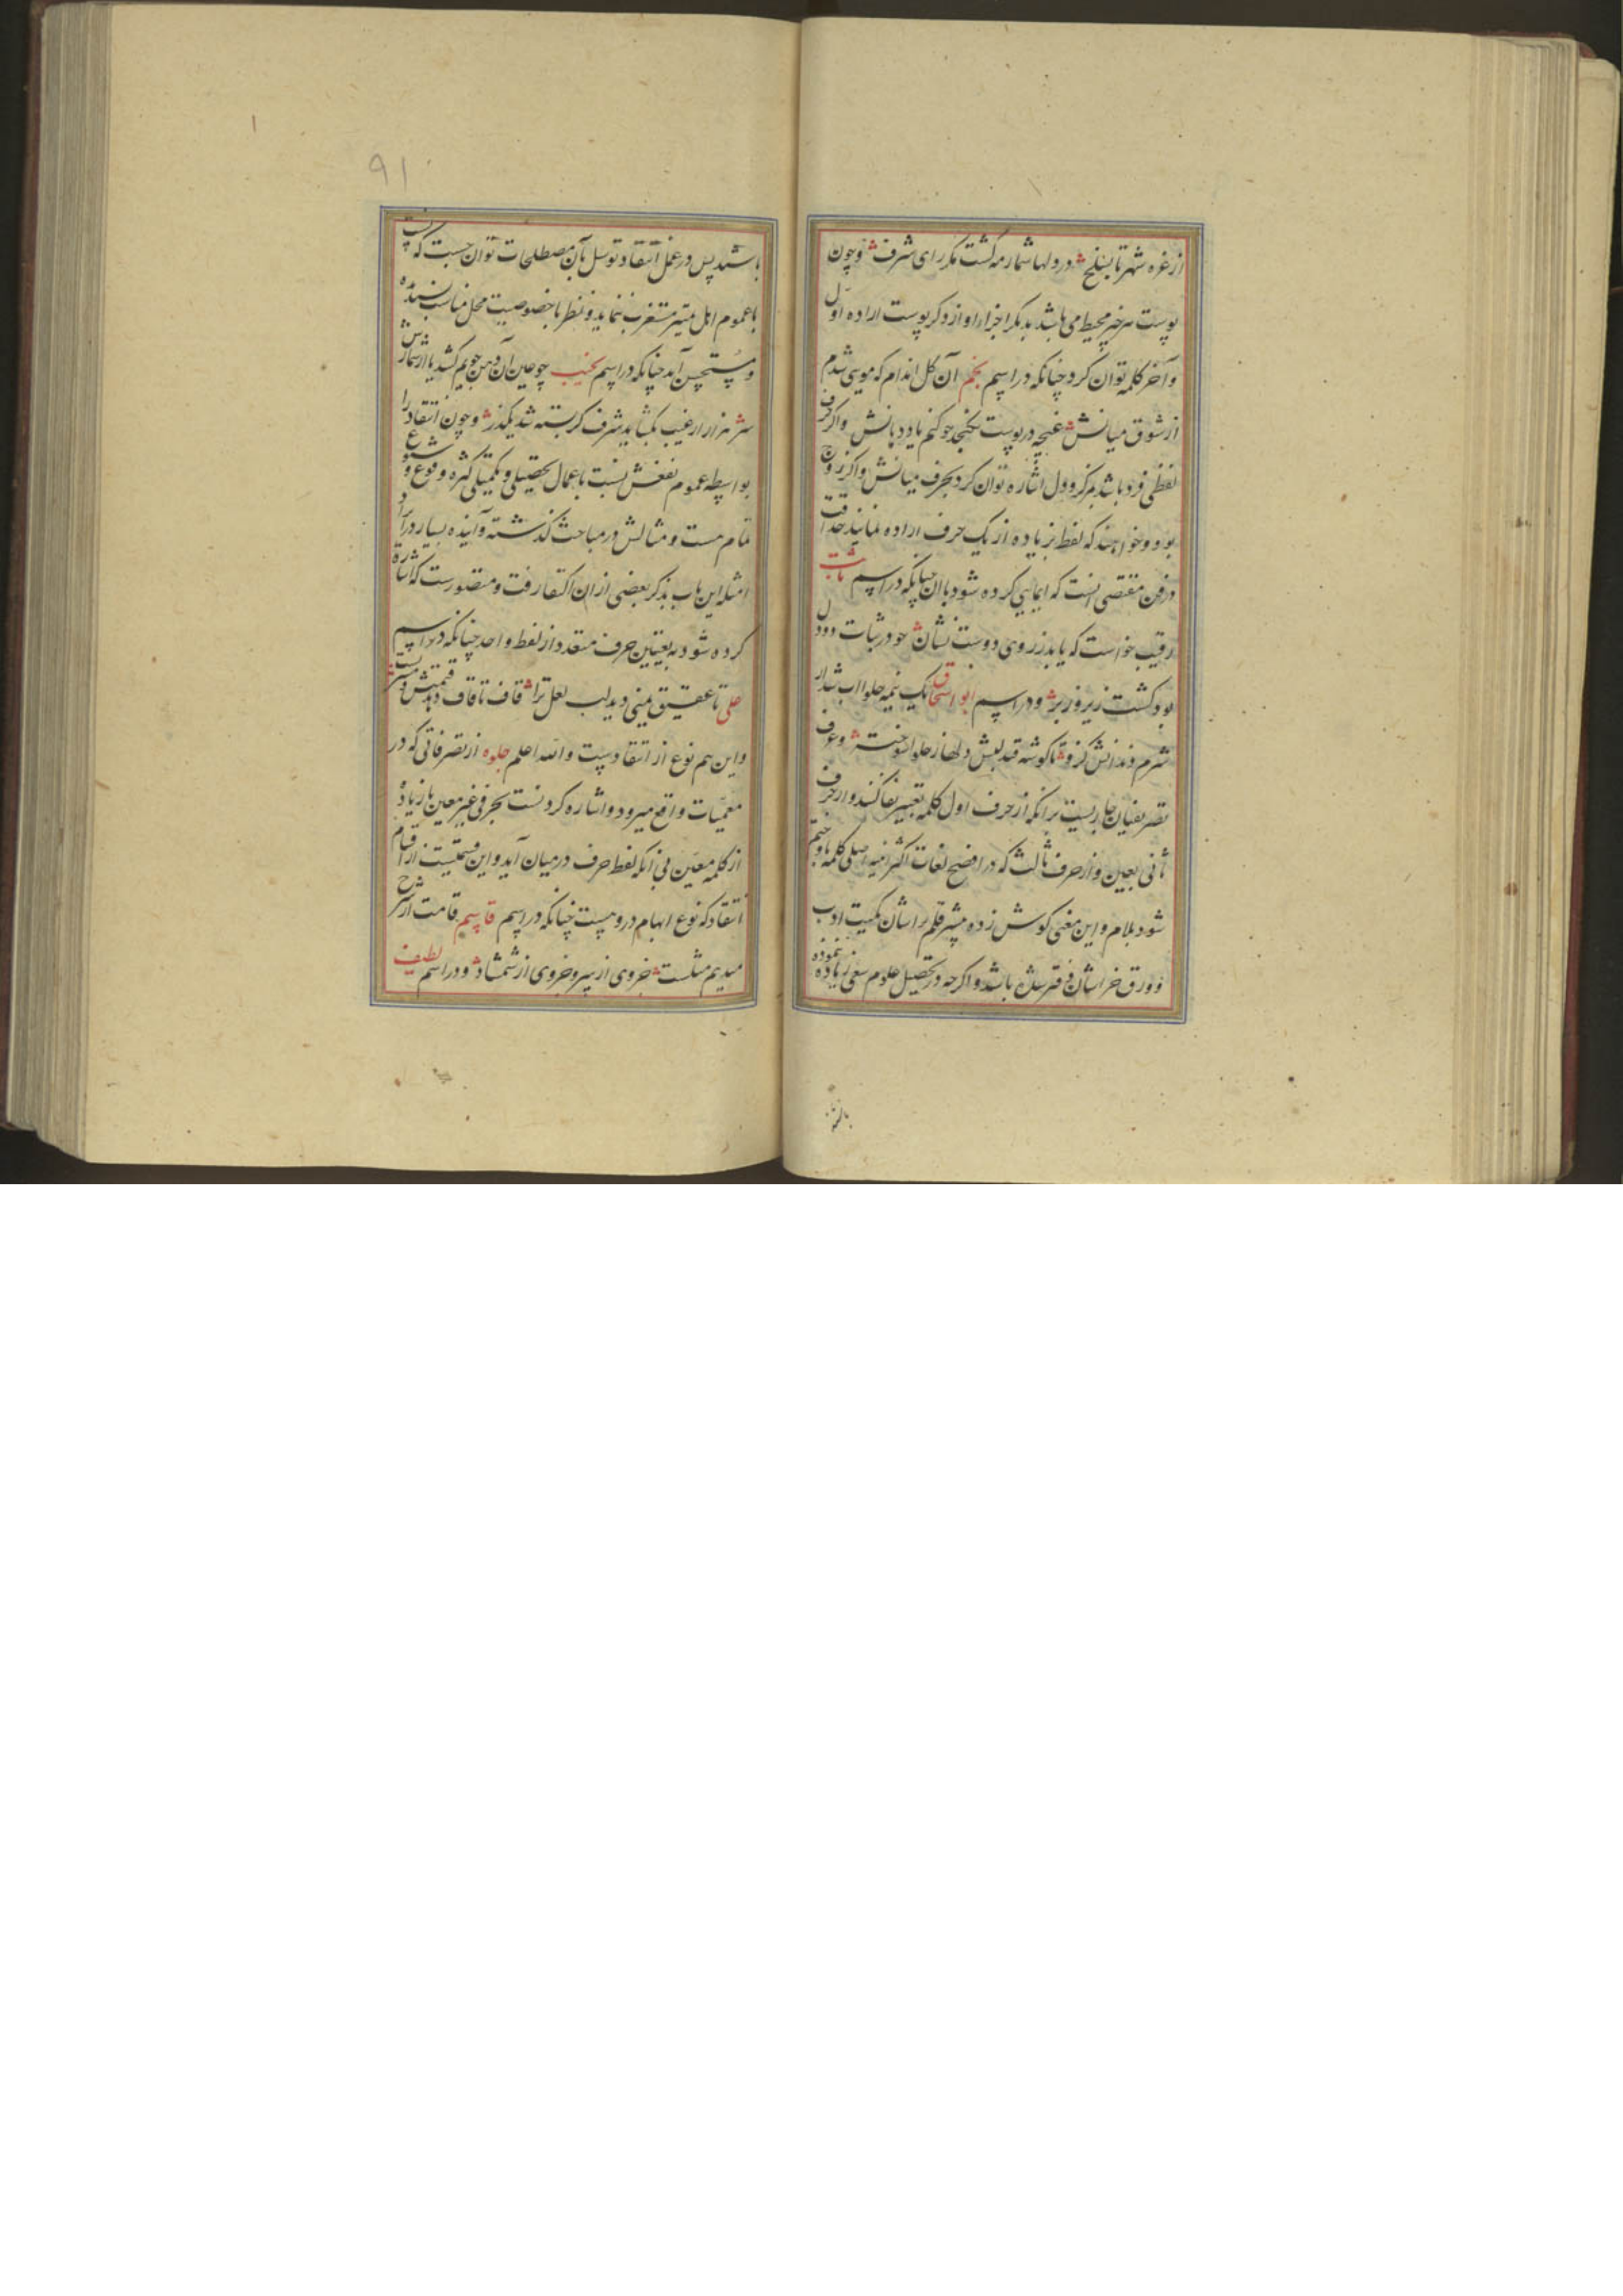 از غره شهر تا بسلخ در دلها شمار مه گشت مگر رای شرف و چون
پوست هر چیز محیط می باشد بدیگر اجزاء او از ذکر پوست اراده اول
و آخر کلمه توان کرد چنانکه در اسم نجم آن گل اندام که موی شدم
از شوق میانش غنچه در پوست نگنجد چو کنم یاد دهانش و اگر حرف
لفظی فرد باشد بمرکز و دل اشاره توان کرد بحرف میانش و اگر زوج
بود و خواهند که لفظ بزیاده از یک حرف اراده نمایند حذاقت
در فن مقتضی آنست که ایمایی کرده شود بان چنانکه در اسم ثابت
رقیب خواست که یابد ز روی دوست نشان چو در ثبات دو دل
بود گشت زیر و زبر و در اسم ابو اسحاق یک نیمه حلوا اب شد از
شرم دندانش گزو تا گوشه قند لبش دلها ز حلوا سوخته و عرف
تصریفیان جاریست برانکه از حرف اول کلمه تعبیر بفا کنند و از حرف
ثانی بعین و از حرف ثالث که در افصح لغات اکثر ابنیه اصلی کلمه باو ختم
شود بلام و این معنی گوش زده مشیر قلم راسان کمیت ادب
و ورق خراسان باشد و اگر چه در تحصیل علوم سعی زیاده ننموده
باشند پس در عمل انتقاد توسل بآن مصطلحات توان جست که نسبت
با عموم اهل تمیز مستغرب ننماید و نظر با خصوصیت محل مناسب پسندیده
و مستحسن آید چنانکه در اسم نجیب چو عین آن دهن جویم کشد یا از شمارش
سر هزار از غیب بگشاید شرف گر بسته شد یک در و چون انتقاد را
بواسطه عموم نفعش نسبت باعمال تحصیلی و تکمیلی کثره وقوع و شیوع
تمام هست و مثالش در مباحث گذشته و آینده بسیار در آرد
امثله این باب بذکر بعضی از ان اکتفا رفت و متصورست که اشاره
کرده شود به تعیین حرف متعدد از لفظ واحد چنانکه در اسم
علی تا عقیق یمنی دید لب لعل ترا قاف تا قاف
و این هم نوع از انتقادست و الله اعلم جلوه از تصرفاتی که در
معمیات واقع میرود و اشاره کردنست بحرفی غیر معین یا زیاده
از کلمه معین بی آنکه لفظ حرف در میان آید و این قسمیست از اقسام
انتقاد که نوع ابهام دروست چنانکه در اسم قاسم قامت ار شرح
میدهم مثلست جزوی از سرو جزوی از شمشاد و در اسم لطیف